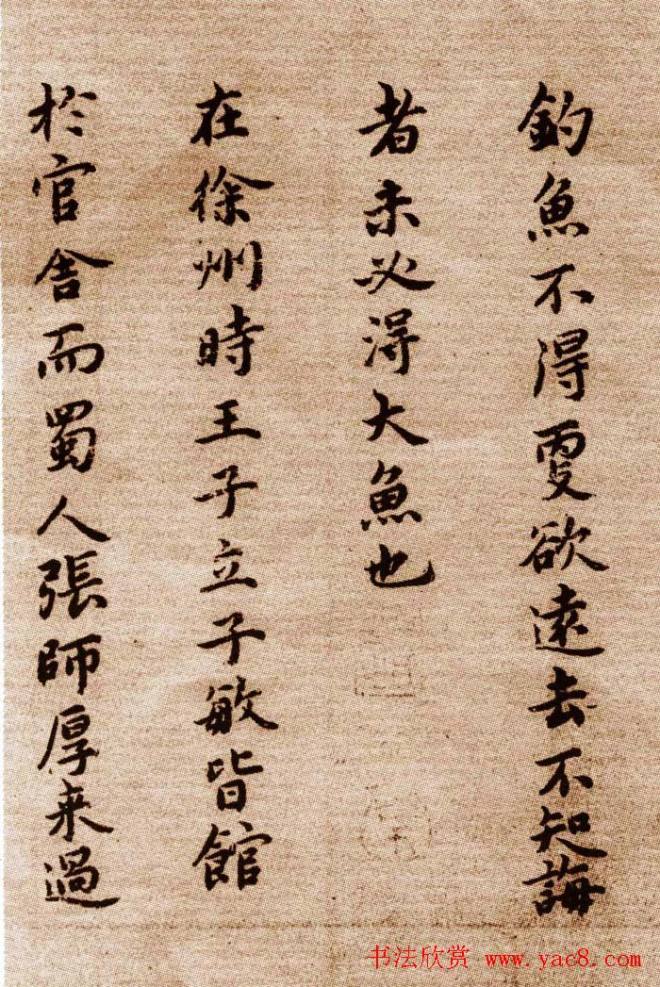 釣魚不得更欲遠去不知誨
者未必得大魚也
在徐州時王子立子敏皆館
於官舎而蜀人張師厚来過
书法欣赏 www.yac8.com